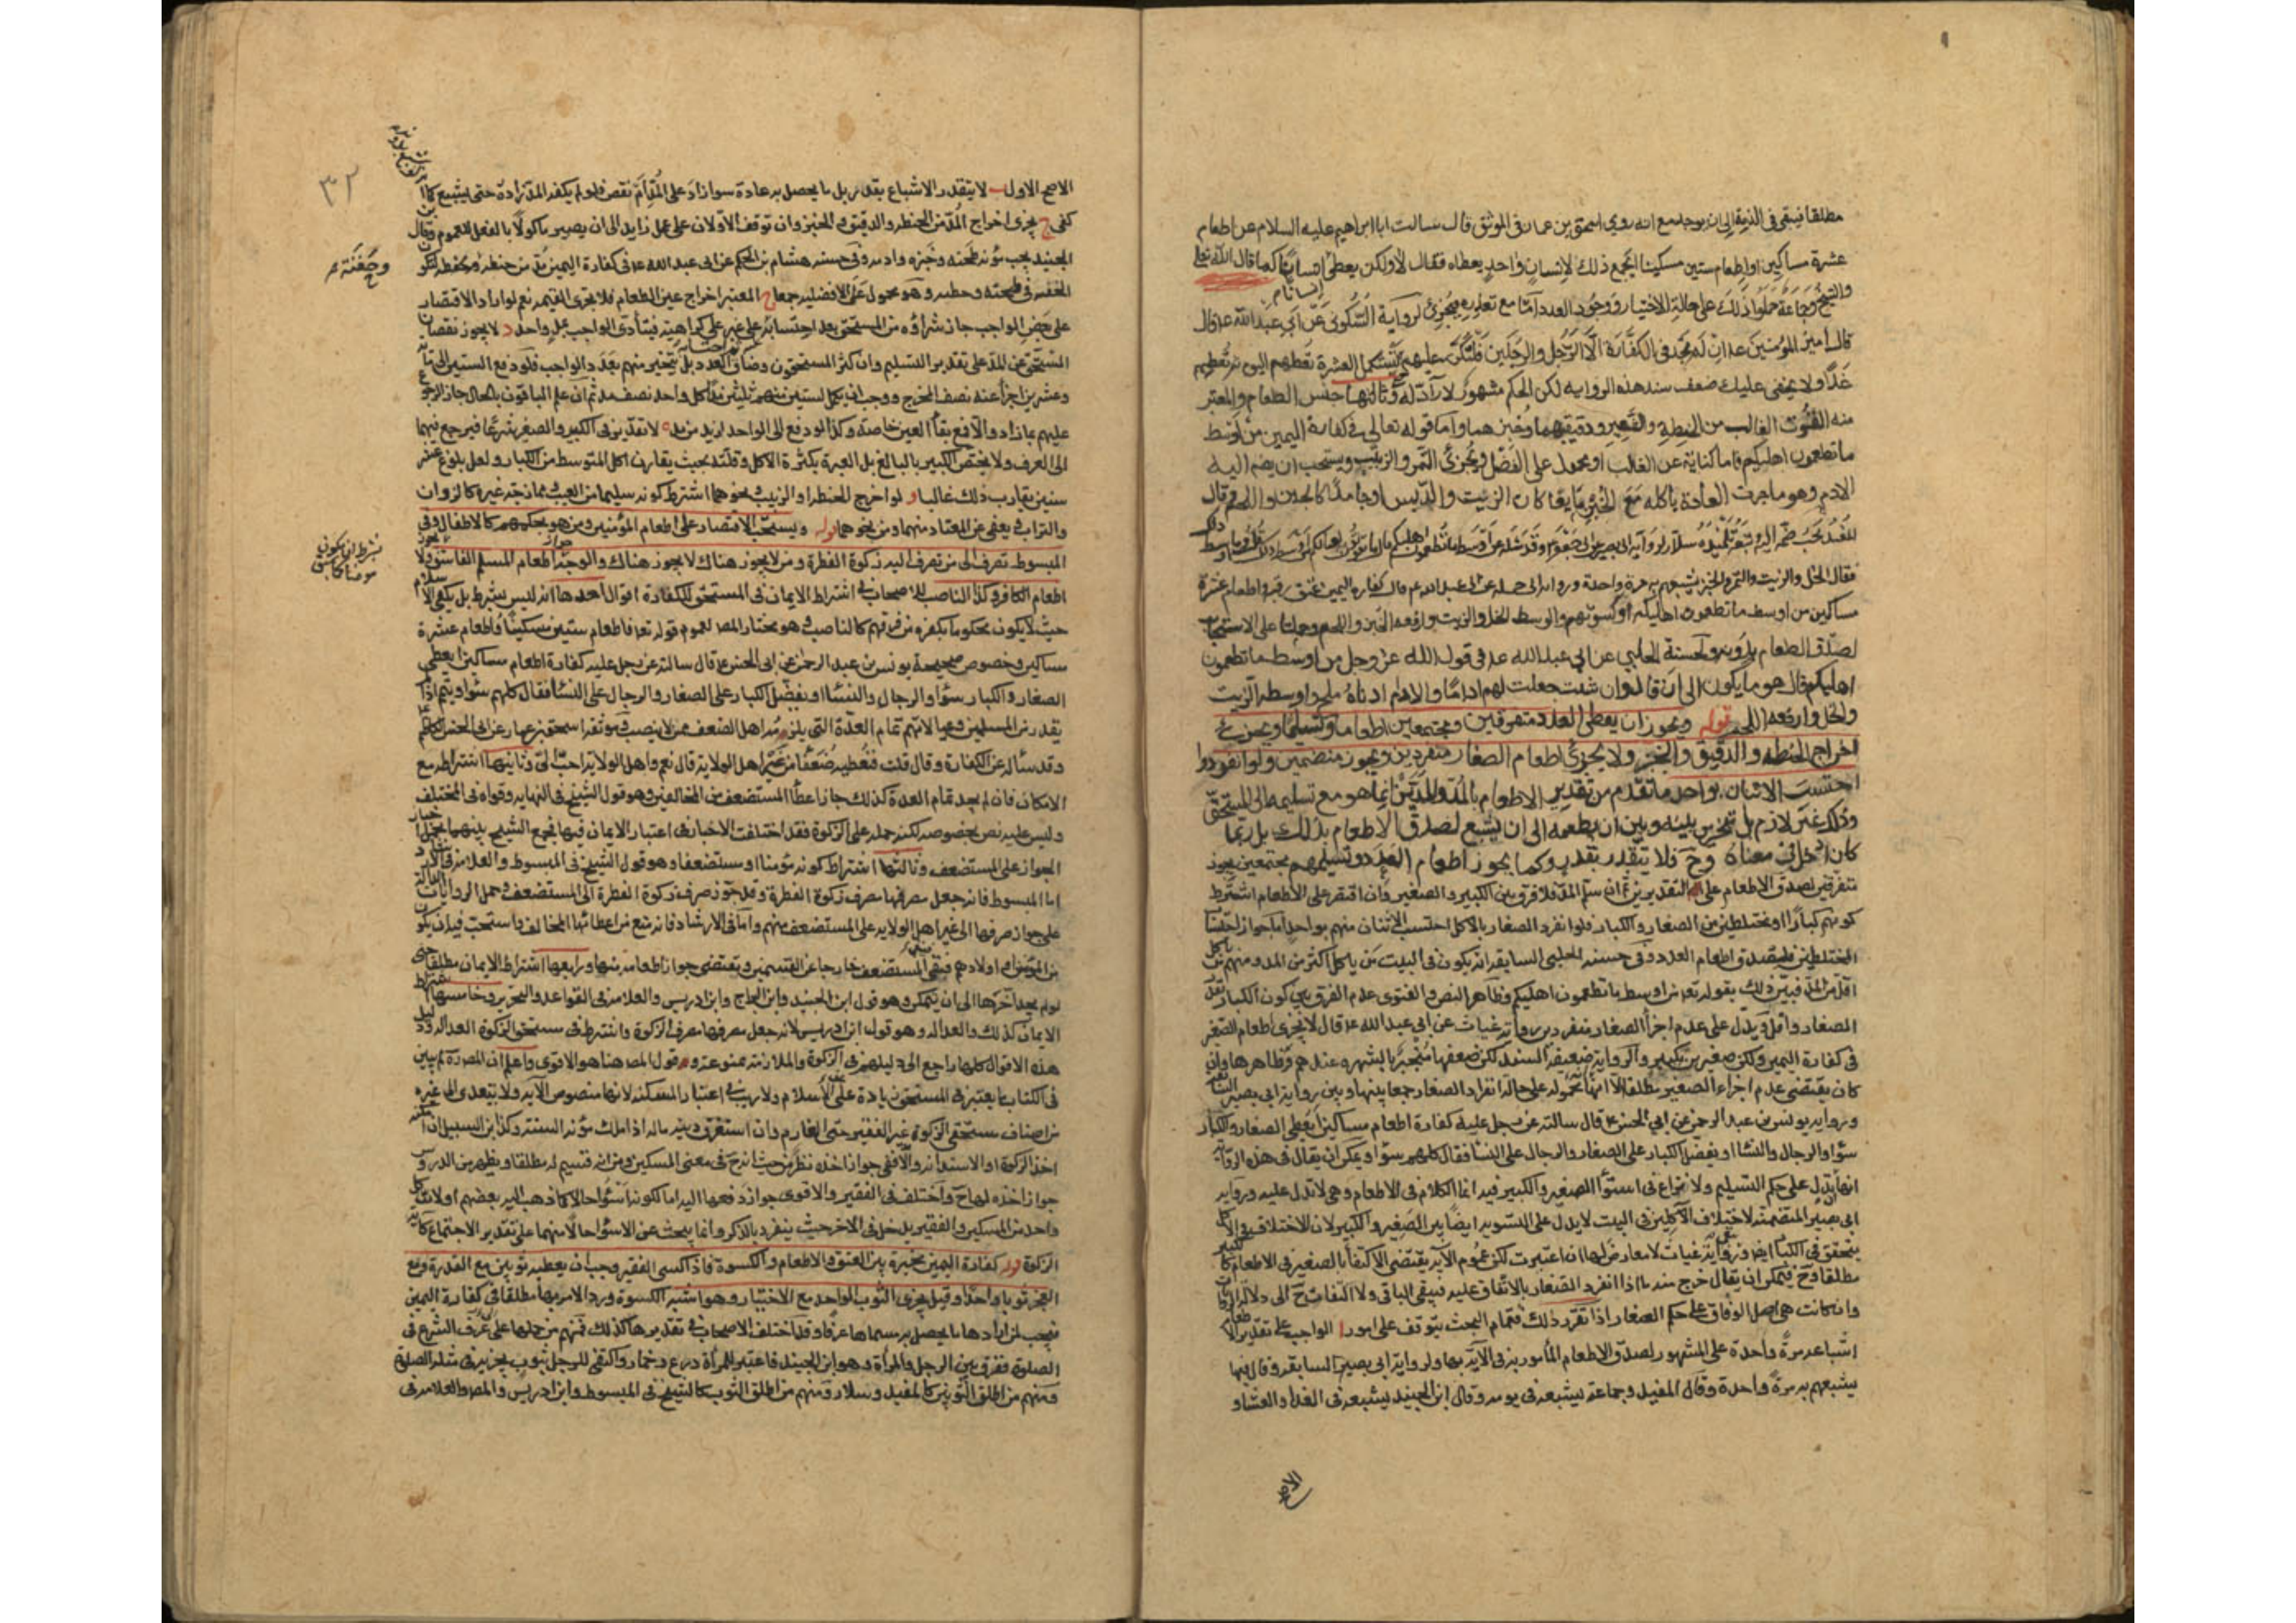 مطلقا فيبقى فى الذمة الى ان يوجد مع انه روى اسحق بن عمار فى الموثق قال سالت ابا ابراهيم عليه السلام عن اطعام
عشرة مساكين او اطعام ستين مسكينا ايجمع ذلك لانسان واحد يعطاه فقال لا ولكن يعطى انسانا كما قال الله تعالى
انسانا
والشيخ وجماعة حملوا ذلك على حالة الاختيار ووجود العدد اما مع تعذره فيجزئ لرواية السكونى عن ابى عبد الله ع قال
قال امير المؤمنين ع ان لم يجد فى الكفارة الا الرجل والرجلين فليكرر عليهم حتى يستكمل العشرة يعطيهم اليوم ثم يعطيهم
غدا ولا يخفى عليك ضعف سند هذه الرواية لكن الحكم مشهور لا راد له وثالثها جنس الطعام والمعتبر
منه القوت الغالب من الحنطة والشعير ودقيقهما وخبزهما واما قوله تعالى فى كفارة اليمين من اوسط
ما تطعمون اهليكم فاما كناية عن الغالب او محمول على الفضل ويجزئ التمر والزبيب ويستحب ان يضم اليه
الادم وهو ما جرت العادة باكله مع الخبز مايعا كان كالزيت والدبس او جامدا كالجبن واللحم وقال
المفيد يجب ضمه اليه وتبعه تلميذه سلار لرواية ابى بصير
فقال الخل والزيت والتمر والخبز يشبعهم به مرة واحدة ورواية ابى جميلة عن ابى عبد الله ع قال كفارة اليمين عتق رقبة او اطعام عشرة
مساكين من اوسط ما تطعمون اهليكم او كسوتهم والوسط الخل والزيت وارفعه الخبز واللحم وحملتا على الاستحباب
لصدق الطعام بدونه ولحسنة الحلبى عن ابى عبد الله ع فى قول الله عز وجل من اوسط ما تطعمون
اهليكم قال هو ما يكون الى ان قال وان شئت جعلت لهم اداما والادم ادناه ملح واوسطه الزيت
والخل وارفعه اللحم قوله ويجوز ان يعطى العدد متفرقين ومجتمعين اطعاما وتسليما ويجزئ
اخراج الحنطة والدقيق والخبز ولا يجزئ اطعام الصغار منفردين ويجوز منضمين ولو انفردوا
احتسب الاثنان بواحد ما تقدم من تقدير الاطعام بالمد والمدين انما هو مع تسليمه الى المستحق
وذلك غير لازم بل يتخير بينه وبين ان يطعمه الى ان يشبع لصدق الاطعام بذلك بل ربما
كان ادخل فى معناه وح فلا يتقدر بقدر وكما يجوز اطعام العدد وتسليمهم مجتمعين يجوز
متفرقين لصدق الاطعام على التقديرين ثم ان سلم المد فلا فرق بين الكبير والصغير وان اقتصر على الاطعام اشترط
كونهم كبارا او مختلطين من الصغار والكبار فلو انفرد الصغار بالاكل احتسب الاثنان منهم بواحد اما جواز احتساب
المختلطين فلصدق اطعام العدد وفى حسنة الحلبى السابقة انه يكون فى البيت من ياكل اكثر من المد ومنهم من ياكل
اقل من المد فبين ذلك بقوله تعالى من اوسط ما تطعمون اهليكم وظاهر النص والفتوى عدم الفرق بين كون الكبار بقدر
الصغار واقل ويدل على عدم اجزا الصغار منفردين رواية غياث عن ابى عبد الله ع قال لا يجزى اطعام الصغير
فى كفارة اليمين ولكن صغيرين بكبير والرواية ضعيفة السند لكن ضعفها منجبر بالشهرة عندهم وظاهرها وان
كان يقتضى عدم اجزاء الصغير مطلقا الا انها محمولة على حالة انفراد الصغار جمعا بينها وبين رواية ابى بصير السابقة
ورواية يونس بن عبد الرحمن عن ابى الحسن ع قال سالته عن رجل عليه كفارة اطعام مساكين ايعطى الصغار والكبار
سؤا والرجال والنسا او يفضل الكبار على الصغار والرجال على النسا فقال كلهم سوا ويمكن ان يقال فى هذه الرواية
انها تدل على حكم التسليم ولا نزاع فى استوا الصغير والكبير فيه انما الكلام فى الاطعام وهى لا تدل عليه ورواية
ابى بصير المتضمنة لاختلاف الآكلين فى البيت لا يدل على التسوية ايضا بين الصغير والكبير لان الاختلاف فى الاكل
يتحقق فى الكبار ايضا ورواية غياث لا معارض لها ان اعتبرت لكن عموم الآية يقتضى الاكتفا بالصغير فى الاطعام كالكبير
مطلقا وح فيمكن ان يقال خرج منه ما اذا انفرد الصغار بالاتفاق عليه فيبقى الباقى ولا التفات ح الى دلالة الروايات
وان كانت هى اصل الوفاق على حكم الصغار اذا تقرر ذلك فتمام البحث يتوقف على امور ا الواجب على تقدير الاطعام
اشباعه مرة واحدة على المشهور لصدق الاطعام المامور به فى الآية بها ولرواية ابى بصير السابقة وقال فيها
يشبعهم به مرة واحدة وقال المفيد وجماعة يشبعه فى يومه وقال ابن الجنيد يشبعه فى الغدا والعشا و
الاصح
٣٢
الاصح الاول ب لا يتقدر الاشباع بقدر بل ما يحصل به عادة سوا زاد على المد ام نقص فلو لم يكفه المد زاده حتى يشبع كما
كفى ج يجزى اخراج المد من الحنطة والدقيق والخبز وان توقف الاولان على عمل زايد الى ان يصير ماكولا بالفعل للعموم وقال ابن
الجنيد يجب مؤنة طحنه وخبزه وادمه وفى حسنة هشام بن الحكم عن ابى عبد الله ع فى كفارة اليمين مد من حنطة وحفنة لتكون
وحفنة
الحفنة فى طحنه وحطبه وهو محمول على الافضلية جمعا المعتبر اخراج عين الطعام فلا يجزى القيمة نعم لو اراد الاقتصار
على بعض الواجب جاز شراؤه من المستحق بعد احتسابه على غير على كراهية فيتأدى الواجب بمد واحد د لا يجوز نقصان
المستحق عن المد على تقدير التسليم وان كثر المستحقون وضاق العدد بل يتخير منهم بقدر الواجب فلو دفع الستين الى مائة
وعشرين اجزأ عنه نصف المخرج ووجب ان يكمل لستين منهم ثلثين مدا لكل واحد نصف مد ثم ان علم الباقون بالحال جاز الرجوع
عليهم بما زاد والا فمع بقا العين خاصة وكذا لو دفع الى الواحد ازيد من مد ه لا تقدير فى الكبير والصغير شرعا فيرجع فيهما
الى العرف ولا يختص الكبير بالبالغ بل العبرة بكثرة الاكل وقلته بحيث يقارب اكل المتوسط من الكبار ولعل بلوغ عشر
سنين يقارب ذلك غالبا و لو اخرج الحنطة او الزبيب ونحوهما اشترط كونه سليما من العيب وممازجة غيره كالزوان
والتراب ويعفى عن المعتاد منهما ومن نحوهما قوله ويستحب الاقتصار على اطعام المؤمنين ومن هو بحكمهم كالاطفال وفى
المبسوط تصرف الى من تصرف اليه زكوة الفطرة ومن لا يجوز هناك لا يجوز هنا والوجه جواز اطعام المسلم الفاسق ولا يجوز
اطعام الكافر وكذا الناصب للاصحاب فى اشتراط الايمان فى المستحق للكفارة اقوال احدها انه ليس بشرط بل يكفى الاسلام
حيث لا يكون محكوما بكفره من فرقهم كالناصب وهو مختار المص لعموم قوله تعا فاطعام ستين مسكينا فاطعام عشرة
مساكين وخصوص صحيحة يونس بن عبد الرحمن عن ابى الحسن ع قال سالته عن رجل عليه كفارة اطعام مساكين ايعطى
الصغار والكبار سؤا والرجال والنسا او يفضل الكبار على الصغار والرجال على النسا فقال كلهم سؤا ويتمم اذا لم
يقدر من المسلمين وعيالاتهم تمام العدة التى يلزمه اهل الضعف ممن لا ينصب وموثقة اسحق بن عمار عن ابى الحسن الكاظم ع
وقد سأله عن الكفارة وقال قلت فنعطيه ضعفا من غير اهل الولاية قال نعم واهل الولاية احب الى وثانيها اشتراطه مع
الامكان فان لم يجد تمام العدة كذلك جاز اعطأ المستضعف من المخالفين وهو قول الشيخ فى النهاية وقواه فى المختلف
وليس عليه نص بخصوصه لكنه حمله على الزكوة فقد اختلفت الاخبار فى اعتبار الايمان فيها فجمع الشيخ بينهما بحمل اخبار
الجواز على المستضعف وثالثها اشتراط كونه مؤمنا او مستضعفا وهو قول الشيخ فى المبسوط والعلامة فى الارشاد
اما المبسوط فانه جعل مصرفها مصرف زكوة الفطرة وقد جوز صرف زكوة الفطرة الى المستضعف وحمل الروايات الدالة
على جواز صرفها الى غير اهل الولاية على المستضعف منهم واما فى الارشاد فانه منع من اعطائها المخالف واستحب فيه ان يكون
من المؤمنين واولادهم فبقى المستضعف خارجا عن القسمين ويقتضى جواز اطعامه منها ورابعها اشتراط الايمان مطلقا حتى
لو لم يجد اخرها الى ان يتمكن وهو قول ابن الجنيد وابن البراج وابن ادريس والعلامة فى القواعد والتحرير وخامسها اشتراط
الايمان كذلك والعدالة وهو قول ابن ادريس لانه جعل مصرفها مصرف الزكوة واشترط فى مستحق الزكوة العدالة ودليل
هذه الاقوال كلها راجع الى دليلهم فى الزكوة والملازمة ممنوعة وقول المص هنا هو الاقوى واعلم ان المص ره لم يبين
فى الكتاب ما يعتبر فى المستحق زيادة على الاسلام ولا ريب فى اعتبار المسكنة لانها منصوص الآية ولا يتعدى الى غيره
من اصناف مستحقى الزكوة غير الفقير حتى الغارم وان استغرق دينه ماله اذا ملك مؤنة السنة وكذا ابن السبيل ان امكنه
اخذ الزكوة او الاستدانة والا ففى جواز اخذه نظر من حيث اندرج فى معنى المسكين ومن انه قسيم له مطلقا ويظهر من الدروس
جواز اخذه لها ح واختلف فى الفقير والاقوى جواز دفعها اليه اما لكونه اسؤ حالا كما ذهب اليه بعضهم او لان كل
واحد من المسكين والفقير يدخل فى الآخر حيث ينفرد بالذكر وانما يبحث عن الاسؤ حالا منهما على تقدير الاجتماع كآية
الزكوة قوله كفارة اليمين مخيرة بين العتق والاطعام والكسوة فاذا كسى الفقير وجب ان يعطيه ثوبين مع القدرة ومع
العجز ثوبا واحدا وقيل يجزى الثوب الواحد مع الاختيار وهو اشبه الكسوة ورد الامر بها مطلقا فى كفارة اليمين
فيجب ان يراد بها ما يحصل به مسماها عرفا وقد اختلف الاصحاب فى تقديرها كذلك فمنهم من حملها على عرف الشرع فى
الصلوة ففرق بين الرجل والمراة وهو ابن الجنيد فاعتبر للمراة درع وخمار واكتفى للرجل بثوب يجزيه فى مثله الصلوة
ومنهم من اطلق الثوبين كالمفيد وسلار ومنهم من اطلق الثوب كالشيخ فى المبسوط وابن ادريس والمص والعلامة فى